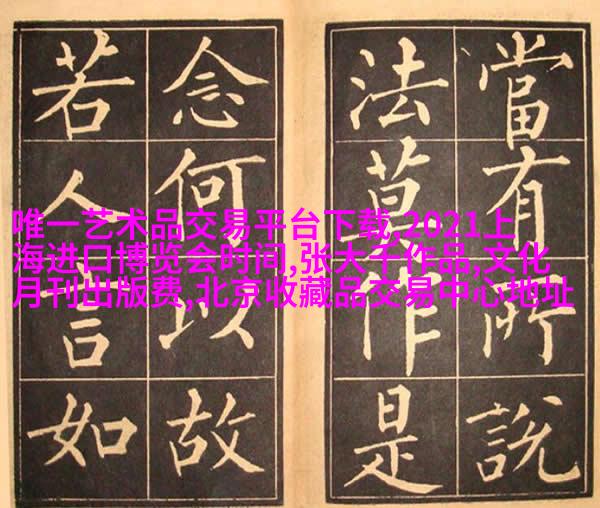 當有所說
法莫作是
念何以故
若人言如
唯一艺术品交易平台下载,2021上
海进口博览会时间,张大千作品,文化
月刊出版费,北京收藏品交易中心地址